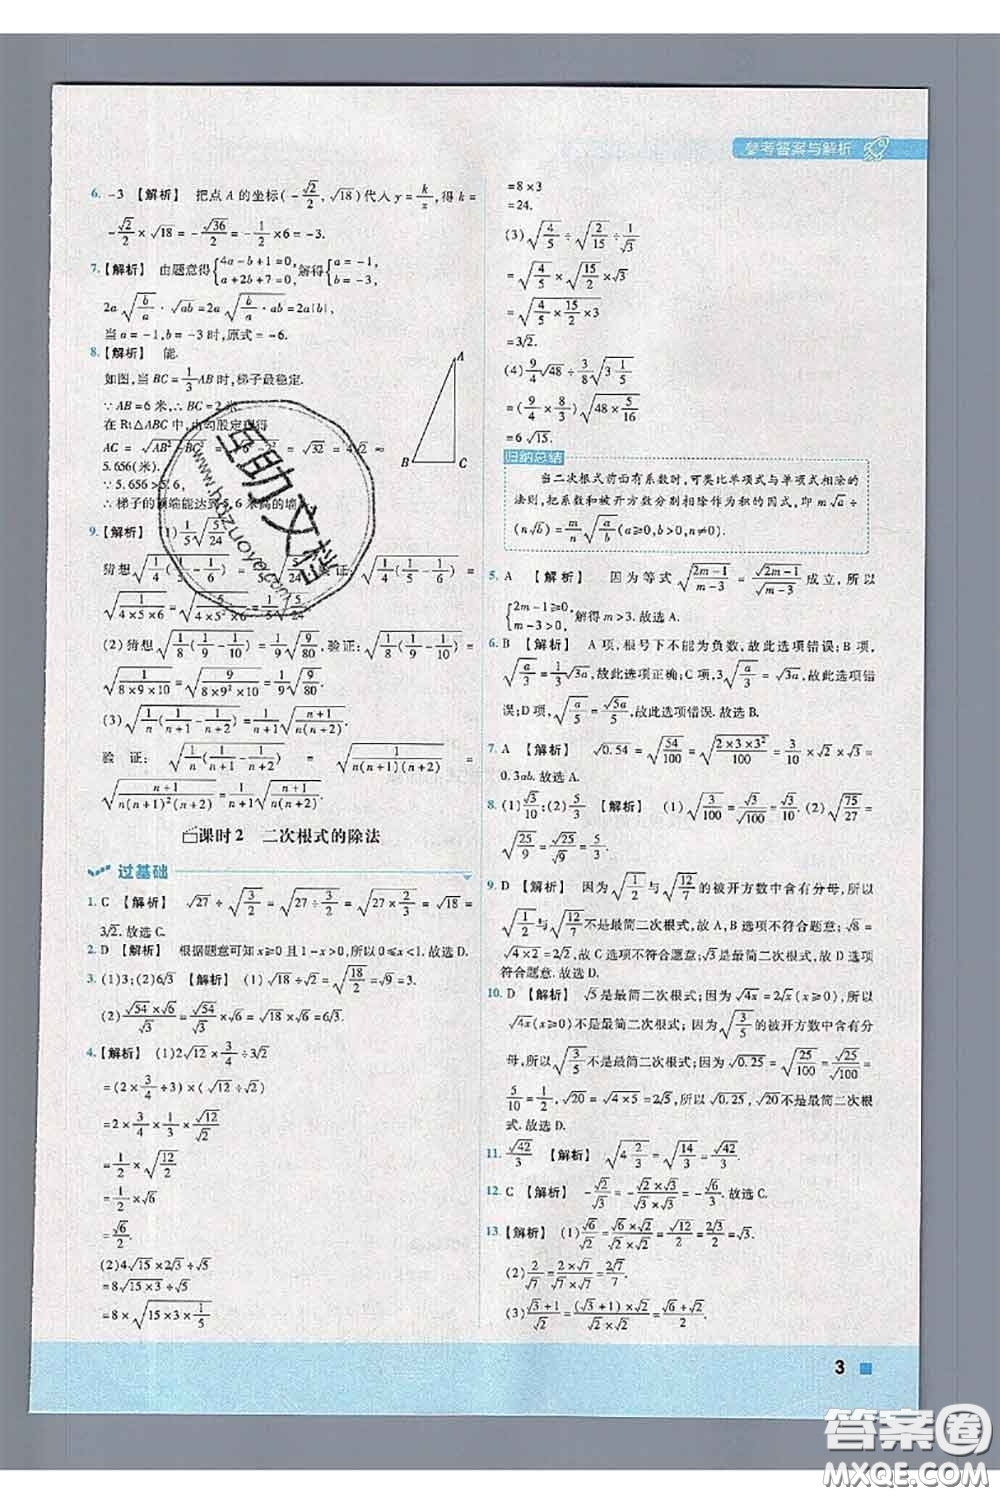 参考答案与解析
6. -3 【解析】 把点 A 的坐标(-√2/2, √18)代入 y=k/x, 得 k=
-√2/2×√18=-√36/2=-1/2×6=-3.
7.【解析】 由题意得{4a-b+1=0, a+2b+7=0, 解得{a=-1, b=-3.
2a√(b/a)·√ab=2a√(b/a·ab)=2a|b|,
当 a=-1,b=-3 时,原式=-6.
8.【解析】 能.
如图,当 BC=1/3AB 时,梯子最稳定.
∵AB=6 米,∴BC=2 米.
在 Rt△ABC 中,由勾股定理得
AC=√(AB²-BC²)=√32=4√2≈
5.656(米).
∵5.656>5.6,
∴梯子的顶端能达到 5.6 米高的墙
A
B C
9.【解析】 (1)1/5√(5/24)
猜想√(1/4(1/5-1/6))=1/5√(5/24) 验证:√(1/4(1/5-1/6))=
√(1/(4×5×6))=√(5/(4×5²×6))=1/5√(5/24).
(2)猜想√(1/8(1/9-1/10))=1/9√(9/80), 验证:√(1/8(1/9-1/10))=
√(1/(8×9×10))=√(9/(8×9²×10))=1/9√(9/80).
(3)√(1/n(1/(n+1)-1/(n+2)))=1/(n+1)√((n+1)/(n(n+2))).
验证:√(1/n(1/(n+1)-1/(n+2)))=√(1/(n(n+1)(n+2)))=
√((n+1)/(n(n+1)²(n+2)))=1/(n+1)√((n+1)/(n(n+2))).
课时2 二次根式的除法
过基础
1. C 【解析】 √27÷√(3/2)=√(27÷3/2)=√(27×2/3)=√18=
3√2.故选 C.
2. D 【解析】 根据题意可知 x≥0 且 1-x>0,所以 0≤x<1.故选 D.
3. (1)3;(2)6√3 【解析】 (1)√18÷√2=√(18/2)=√9=3.
(2)√54×√6/√3=√54/√3×√6=√18×√6=6√3.
4.【解析】 (1)2√12×3/4÷3√2
=(2×3/4÷3)×(√12÷√2)
=1/2×√12/√2
=1/2×√(12/2)
=1/2×√6
=√6/2.
(2)4√15×2√3÷√5
=8√(15×3)÷√5
=8×√(15×3×1/5)
=8×3
=24.
(3)√(4/5)÷√(2/15)÷1/√3
=√(4/5)×√(15/2)×√3
=√(4/5×15/2×3)
=3√2.
(4)9/4√48÷3/8√(3 1/5)
=(9/4×8/3)√(48×5/16)
=6√15.
归纳总结
当二次根式前面有系数时,可类比单项式与单项式相除的
法则,把系数和被开方数分别相除作为积的因式,即 m√a÷
(n√b)=m/n√(a/b)(a≥0,b>0,n≠0).
5. A 【解析】 因为等式√((2m-1)/(m-3))=√(2m-1)/√(m-3)成立,所以
{2m-1≥0, m-3>0, 解得 m>3.故选 A.
6. B 【解析】 A 项,根号下不能为负数,故此选项错误;B 项,
√(a/3)=1/3√3a,故此选项正确;C 项,√(a/3)=1/3√3a,故此选项错
误;D 项,√(a/5)=√5a/5,故此选项错误.故选 B.
7. A 【解析】 √0.54=√(54/100)=√(2×3×3²/100)=3/10×√2×√3=
0.3ab.故选 A.
8. (1)√3/10;(2)5/3 【解析】 (1)√(3/100)=√3/√100=√3/10. (2)√(75/27)=
√(25/9)=√25/√9=5/3.
9. D 【解析】 因为√(1/2)与√(12/7)的被开方数中含有分母,所以
√(1/2)与√(12/7)不是最简二次根式,故 A、B 选项不符合题意;√8=
√(4×2)=2√2,所以 C 选项不符合题意;√5是最简二次根式,故 D 选项
符合题意.故选 D.
10. D 【解析】 √5是最简二次根式;因为√4x=2√x(x≥0),所以
√4x(x≥0)不是最简二次根式;因为√(3/5)的被开方数中含有分
母,所以√(3/5)不是最简二次根式;因为√0.25=√(25/100)=√25/√100=
5/10=1/2,√20=√(4×5)=2√5,所以√0.25,√20不是最简二次根
式.故选 D.
11. √42/3 【解析】 √(4 2/3)=√(14/3)=√14/√3=√42/3.
12. C 【解析】 -√2/√3=-√2×√3/√3×√3=-√6/3.故选 C.
13.【解析】 (1)√6/√2=√6×√2/√2×√2=√12/2=2√3/2=√3.
(2)2/√7=2×√7/√7×√7=2√7/7.
(3)(√3+1)/√2=(√3+1)×√2/√2×√2=(√6+√2)/2.
3
互助文档
www.hdzuoye.com
答案圈
MXQE.COM